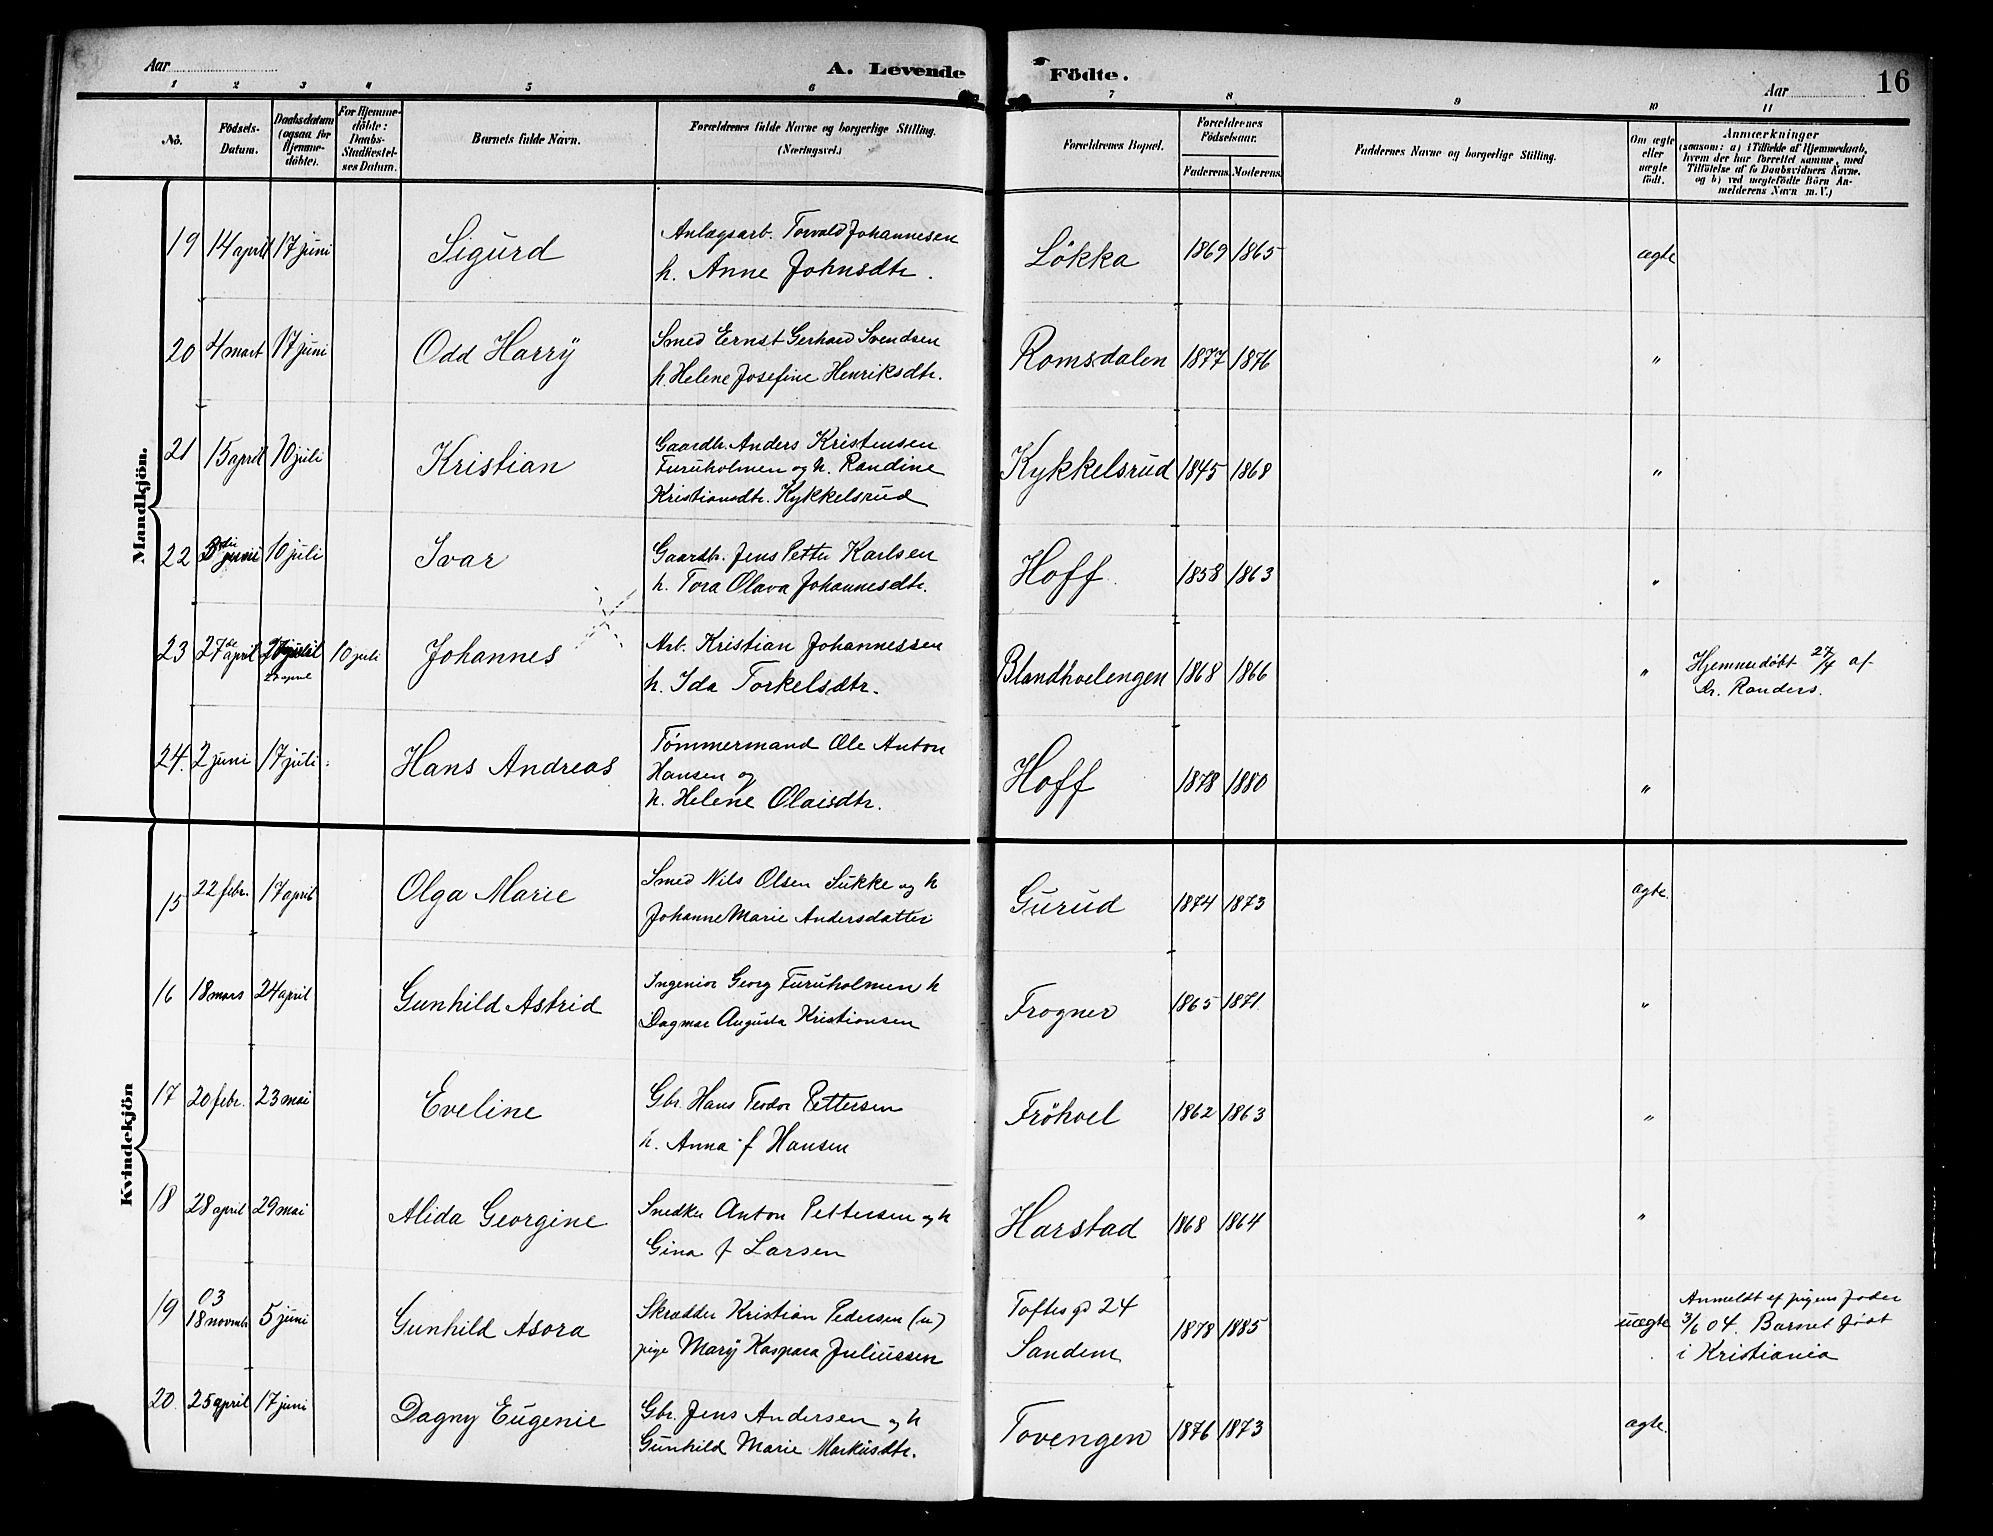 Aar
A. Levende Födte.
Aar 16
1 2 3 4 5 6 7 8 9 10 11
No.
Födsels-
Datum.
Daabsdatum
(ogsaa for
Hjemme-
döbte).
For Hjemme-
döbte:
Daabs-
Stadfæstel-
ses Datum.
Barnets fulde Navn.
Forældrenes fulde Navne og borgerlige Stilling.
(Næringsvei.)
Forældrenes Bopæl.
Forældrenes
Födselsaar.
Faderens. Moderens.
Faddernes Navne og borgerlige Stilling.
Om ægte
eller
uægte
født.
Anmærkninger
(saasom: a) i Tilfælde af Hjemmedaab,
hvem der har forrettet samme, med
Tilföielse af to Daabsvidners Navne.
og b) ved uægtefödte Börn An-
melderens Navn m. V.)
Mandkjön.
19 14 april 17 juni Sigurd Anlægsarb. Torvald Johannesen
h. Anne Johnsdtr. Lökka 1869 1865 ægte
20 4 mart 17 juni Odd Harry Smed Ernst Gerhard Svendsen
h. Helene Josefine Henriksdtr. Romsdalen 1877 1876 "
21 15 april 10 juli Kristian Gaardbr. Anders Kristensen
Furuholmen og h. Randine
Kristiansdtr. Kykkelsrud Kykkelsrud 1845 1868 "
22 juni 10 juli Ivar Gaardbr. Jens Petter Karlsen
h. Tora Olava Johannesdtr. Hoff 1858 1863 "
23 27de april 10 juli Johannes Arb. Kristian Johannessen
27 april
h. Ida Torkelsdtr. Blandhvelengen 1868 1866 " Hjemmedöbt 27/4 af
Dr. Randers.
24. 2 juni 17 juli Hans Andreas Tømmermand Ole Anton
Hansen og
h. Helene Olaisdtr. Hoff 1878 1880 "
Kvindekjön
15 22 febr. 17 april Olga Marie Smed Nils Olsen Sukke og h
Johanne Marie Andersdatter Gurud 1874 1873 ægte.
16 18 mars 24 april Gunhild Astrid Ingeniør Georg Furuholmen h
Dagmar Augusta Kristiansen Frogner 1865 1871 "
17 20 febr. 23 mai Eveline Gbr. Hans Teodor Pettersen
h. Anna f Hansen Fröhvel 1862 1863 "
18 28 april 29 mai Alida Georgine Snedker Anton Pettersen og h
Gina f Larsen Harstad 1868 1864 "
19 03
18 novmbr 5 juni Gunhild Asora Skrædder Kristian Pedersen (u)
pige Mary Kaspara Juliussen Toftes gd 24
Sandem 1878 1885 uægte Anmeldt af pigens fader
3/6 04. Barnet född
i Kristiania
20. 25 april 17 juni Dagny Eugenie Gbr. Jens Andersen og h
Gunhild Marie Markusdtr. Tovengen 1876 1873 ægte.